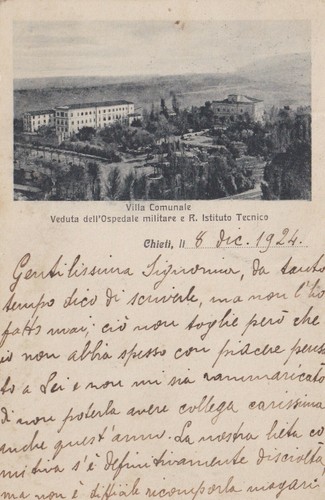 Villa Comunale
Veduta dell'Ospedale militare e R. Istituto Tecnico
Chieti, li 8 dic. 1924.
Gentilissima Signorina, da tanto
tempo dico di scriverle, ma non l'ho
fatto mai; ciò non toglie però che
io non abbia spesso con piacere pensa
to a Lei e non mi sia rammaricato
di non poterla avere collega carissima
anche quest'anno. La nostra lieta co
mitiva s'è definitivamente disciolta
ma non è difficile ricomporla magari